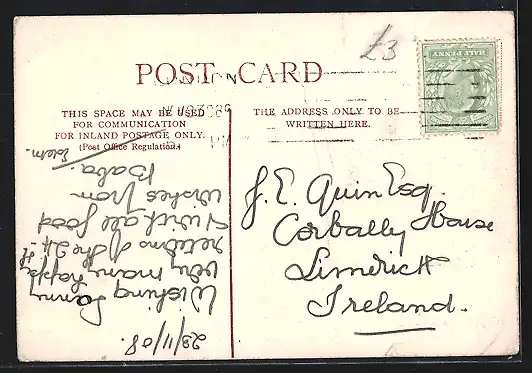 £3
HALF PENNY
POST CARD
THIS SPACE MAY BE USED
FOR COMMUNICATION
FOR INLAND POSTAGE ONLY.
(Post Office Regulation.)
THE ADDRESS ONLY TO BE
WRITTEN HERE.
J. E. Quin Esq.
Corbally House
Limerick
Ireland.
23/11/08.
Wishing Sonny
very many happy
returns of the 24th
& with all good
wishes from
Baba.